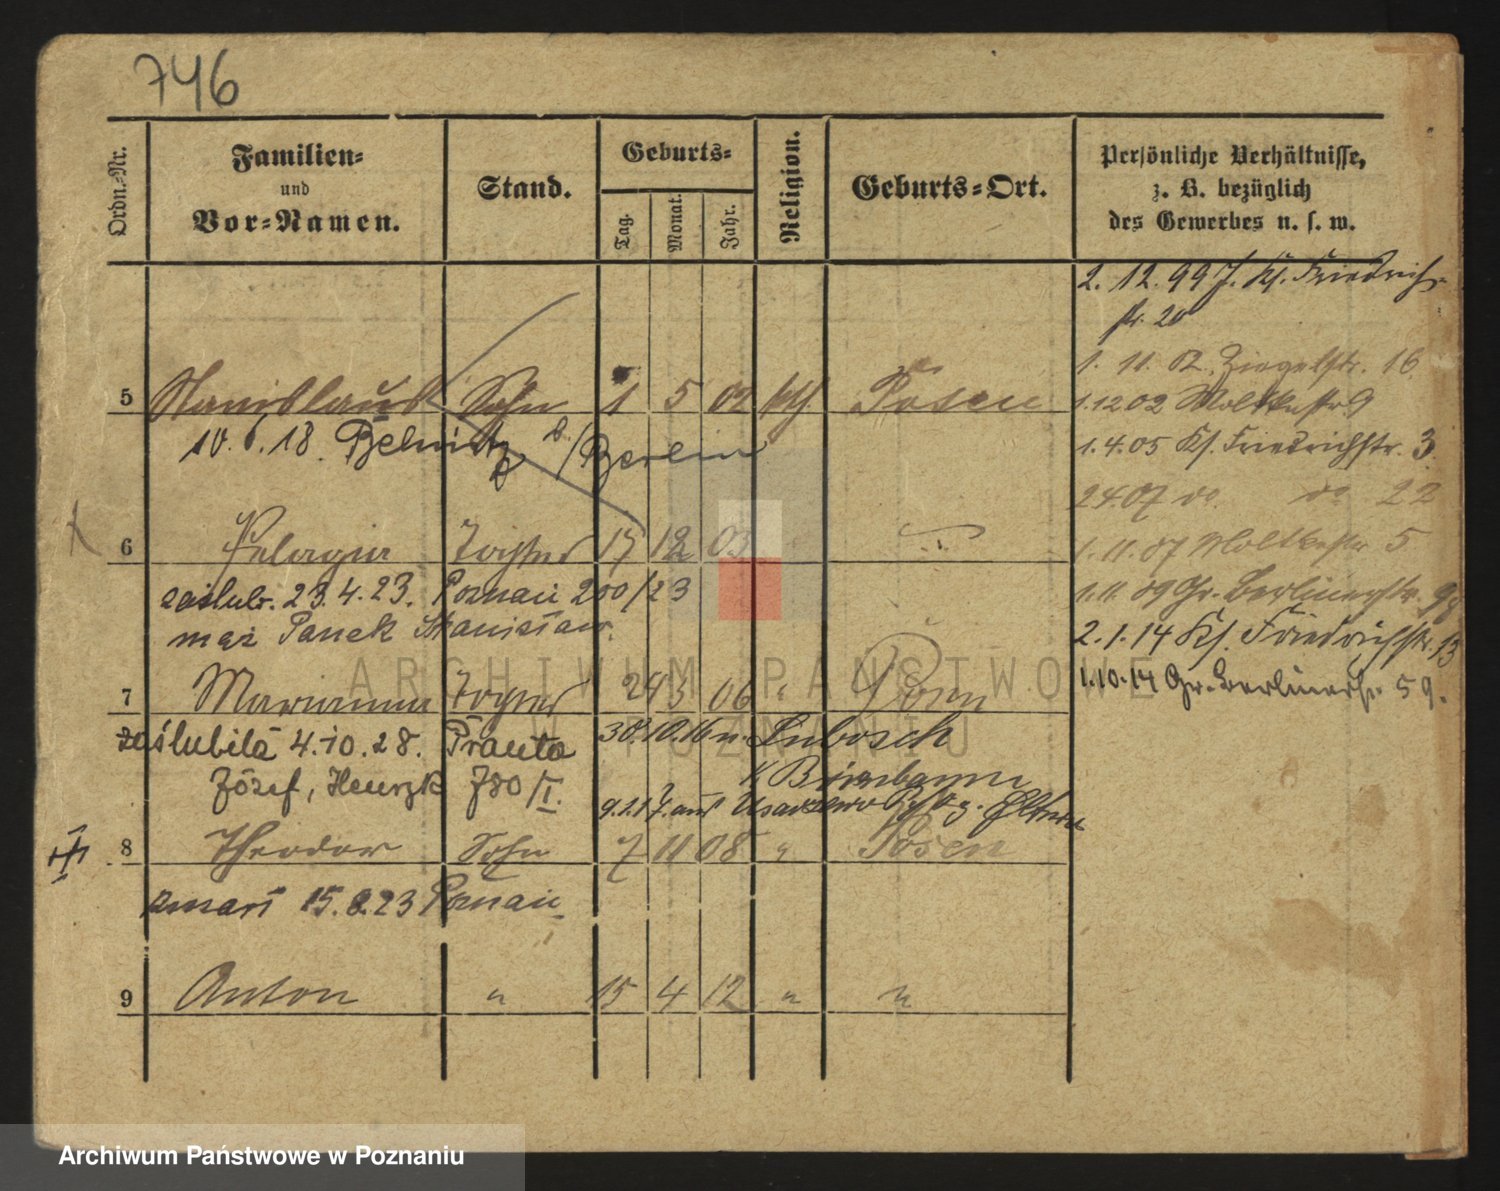 746
Ordn.-Nr.
Familien-
und
Vor-Namen.
Stand.
Geburts-
Tag.
Monat.
Jahr.
Religion.
Geburts-Ort.
Persönliche Verhältnisse,
z. B. bezüglich
des Gewerbes u. s. w.
5 Stanislaus Sohn 1 5 02 kth. Posen
10. 6. 18. Berlin
6 Pelagia Tochter 17 12 03
zaślub. 23. 4. 23. Poznań 200/23
mąż Panek Stanisław.
7 Marianna Tochter 24 3 06 "
zaślubiła 4. 10. 28. Prauta 30. 10. 16 n. Lubosch
Józef, Henryk 780/I. Birnbaum
9. 1. 17. aus Eltern
8 Theodor Sohn 7 11 08 " Posen
zmarł 15. 8. 23 Poznań
9 Anton " 15 4 12 " "
2. 12. 99 Friedrich-
str. 20
1. 11. 02. Ziegelstr. 16
1. 12 02 Moltkestr 9
1. 4. 05 Kl. Friedrichstr. 3
2 4. 07 do. do. 22
1. 11. 07 Moltkestr 5
1. 11. 09 Gr. Berlinerstr. 98
2. 1. 14 Kl. Friedrichstr. 13
1. 10. 14 Gr. Berlinerstr. 59.
ARCHIWUM PAŃSTWOWE
W POZNANIU
Archiwum Państwowe w Poznaniu